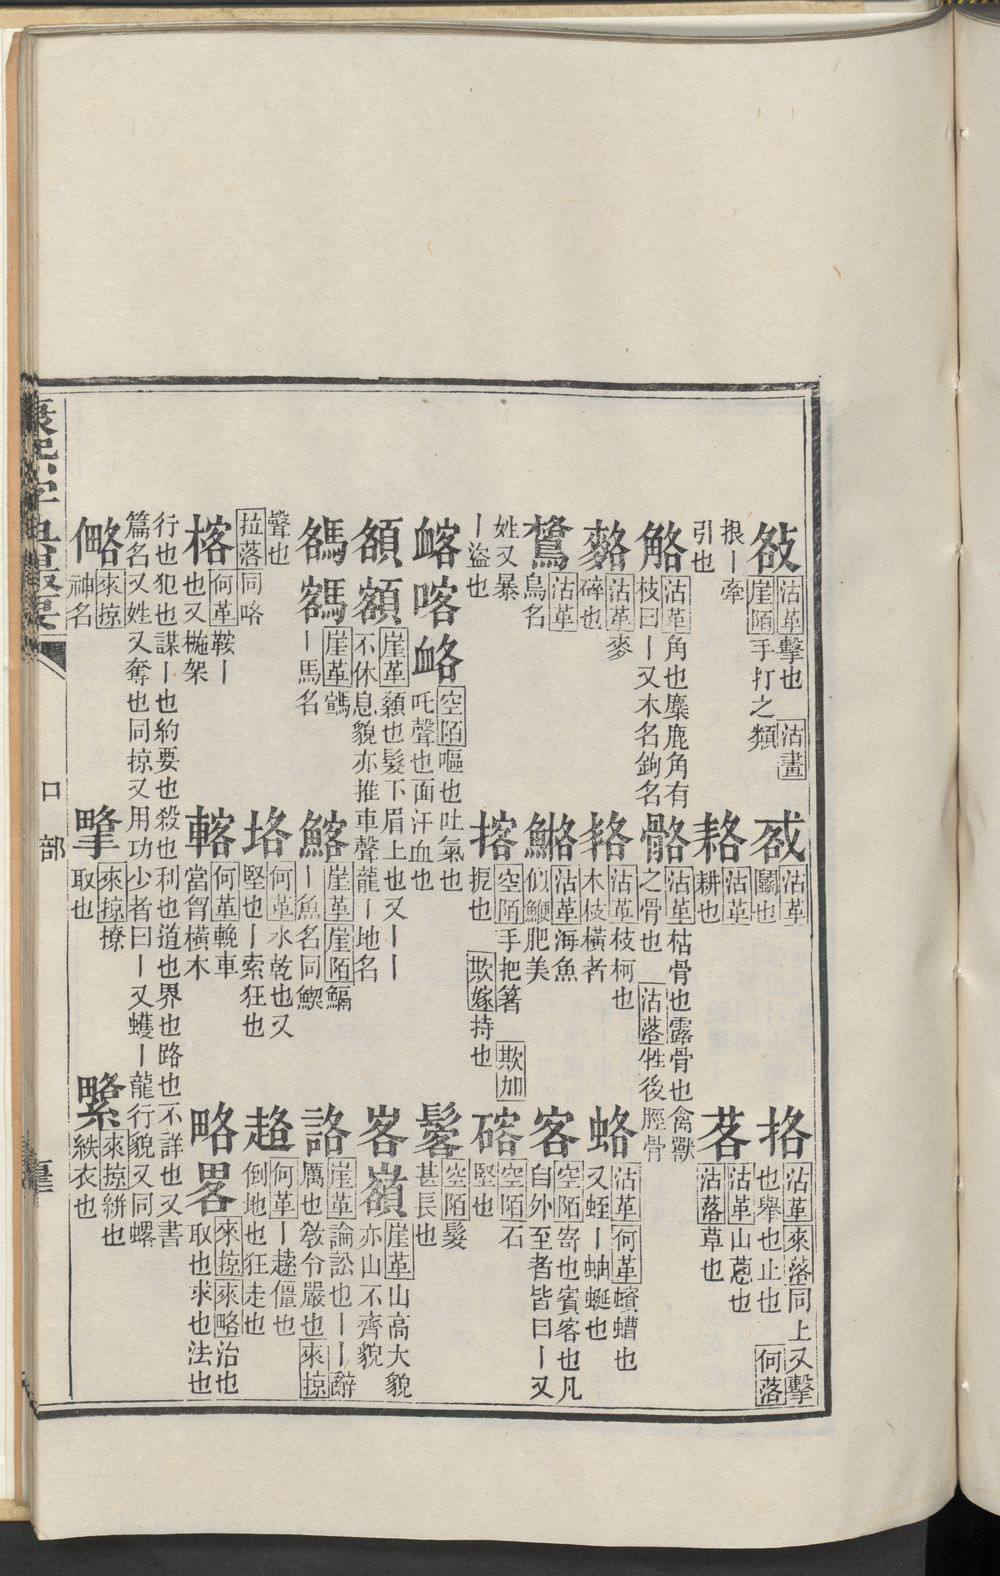 敋 沽革擊也 沽畫
崖陌手打之類
㧯丨牽
引也
㦴 沽革
鬭也
挌 沽革來落同上又擊
也舉也止也 何落
觡 沽革角也麋鹿角有
枝曰丨又木名鉤名
骼 沽革枯骨也露骨也禽獸
之骨也 沽落牲後脛骨
耠 沽革
耕也
茖 沽革山蔥也
沽落草也
䴳 沽革麥
碎也
沽革枝柯也
木枝橫者
蛒 沽革何革螬也
又蛭丨蚰蜒也
鵅 沽革
鳥名
鮥 沽革海魚
似鱮肥美
客 空陌寄也賓客也凡
自外至者皆曰丨又
姓又暴
丨盜也
揢 空陌手把箸 欺加
扼也 欺嫁持也
硌 空陌石
堅也
空陌髮
甚長也
衉 喀 衉 空陌嘔也吐氣也
吒聲也面汗血也
額 額 崖革顙也髮下眉上也又丨丨
不休息貌亦推車聲龍丨地名
峉 崖革山高大貌
亦山不齊貌
崖革
丨馬名
崖革崖陌
丨魚名同鰐
詻 崖革論訟也丨丨辭
厲也敎令嚴也來掠
聲也
拉落同咯
垎 何革水乾也又
堅也丨索狂也
趏 何革丨趚僵也
倒地也狂走也
楁 何革鞍丨
也又椸架
輅 何革輓車
當胷橫木
略 畧 來掠來略治也
取也求也法也
行也犯也謀丨也約要也殺也利也道也界也路也不詳也又書
篇名又姓又奪也同掠又用功少者曰丨又蠖丨龍行貌又同䗉
來掠
神名
撂 來掠撩
取也
來掠絣也
紩衣也
口部